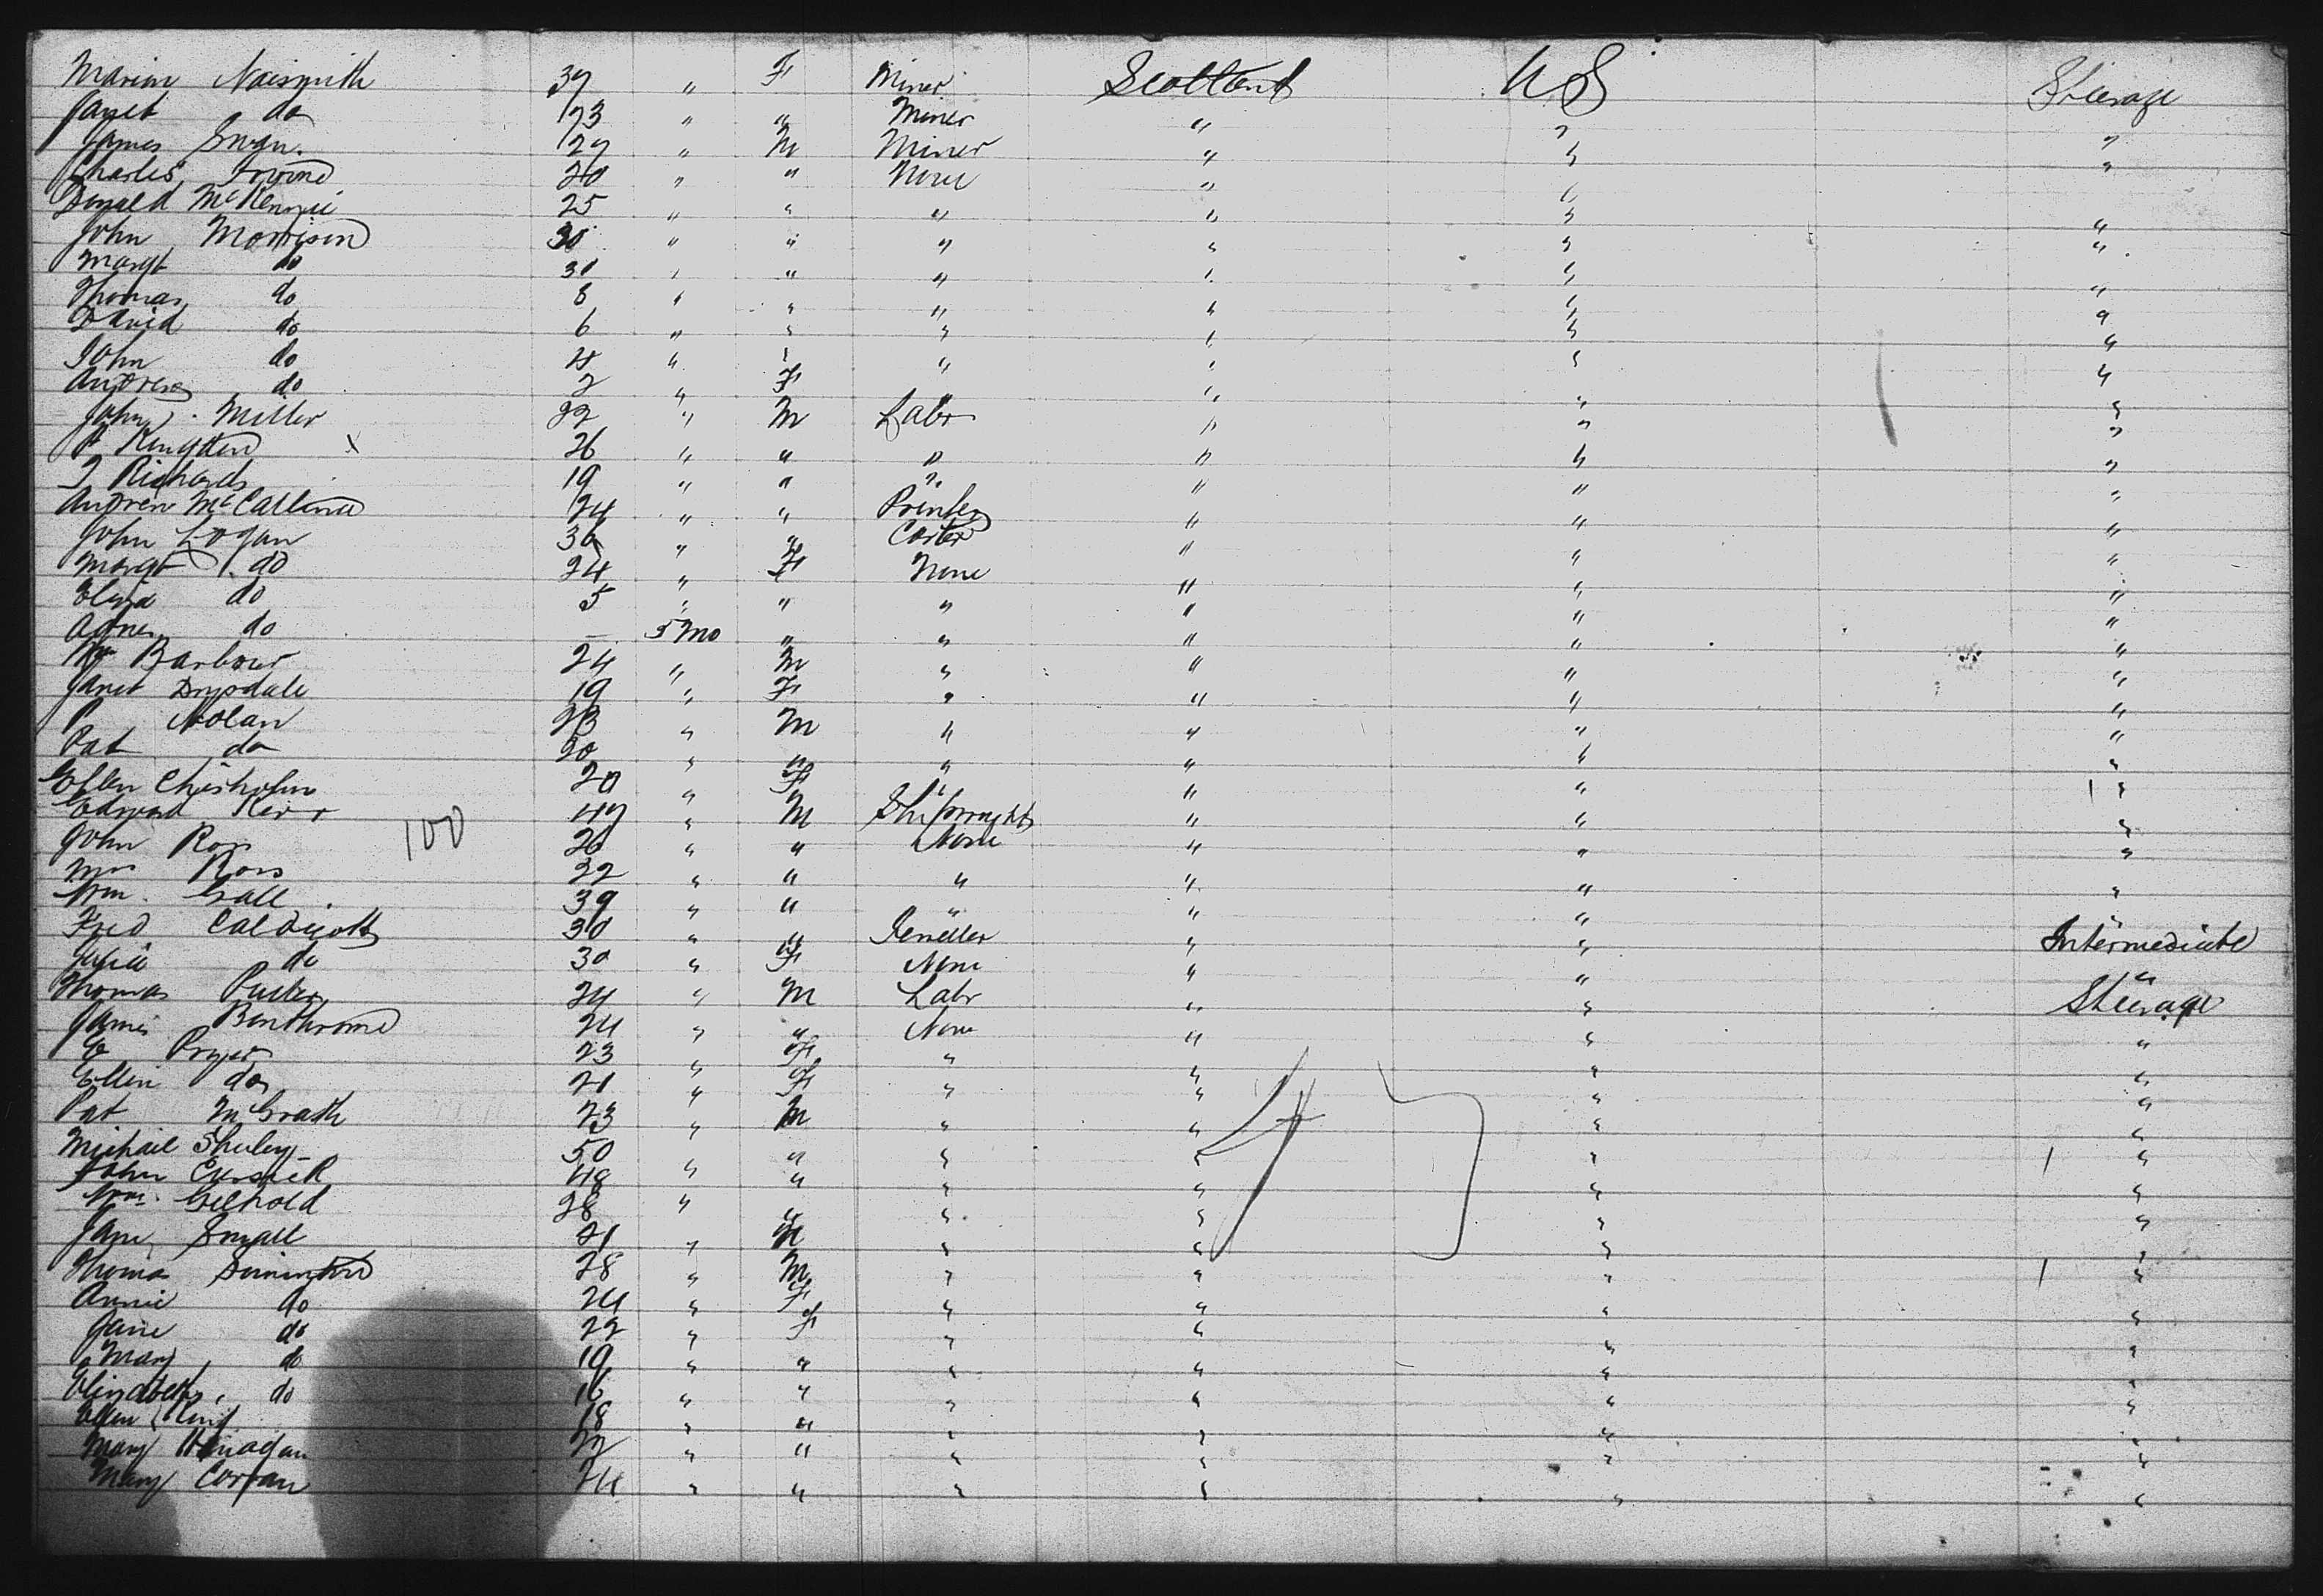 Marion Naismith 37 " F Miner Scotland U S Steerage
Janet do 23 " " Miner " " "
James Swan. 27 " M Miner " " "
Charles Irvine 20 " " None " "
Donald McKenzie 25 " " " " " "
John Morrison 30 " " " " " "
Margt do 30 " " " " " "
Thomas do 8 " " " " " "
David do 6 " " " " " "
John do 4 " " " " " "
Andrew do 2 " F " " " "
John Miller 22 " M Labr " " "
P Kingston x 26 " " " " " "
T Richards 19 " " " " " "
Andrew McCallund 24 " " Printer " " "
John Logan 36 " " Carter " " "
Margt do 24 " F None " " "
Eliza do 5 " " " " " "
Agnes do – 5 mo " " " " "
Wm Barbour 24 " M " " " "
Janet Drysdale 19 " F " " " "
P Nolan 23 " M " " " "
Pat do 20 " " " " " "
Ellen Chisholm 20 " F " " " 1 "
Edward Kerr 47 " M Shipwright " " "
100
John Ross 26 " " None " " "
Mrs Ross 22 " " " " " "
Wm. Gall 39 " " " " " "
Fred Caldicott 30 " " Jeweller " " Intermediate
Julia do 30 " F None " " "
Thomas 24 " M Labr " " Steerage
James 24 " " None " " "
E Pryer 23 " F " " " "
Ellen do 21 " F " " " "
Pat McGrath 23 " M " " " "
Michael Shuley 50 " " " " " 1 "
John Cusick 48 " " " " " "
Wm. 28 " " " " " "
Jane Small 21 " F " " " "
Thomas 28 " M " " " 1 "
Annie do 24 " F " " " "
Jane do 22 " F " " " "
Mary do 19 " " " " " "
Elizabeth do 16 " " " " " "
Ellen King 18 " " " " " "
Mary 22 " " " " " "
Mary Corran 24 " " " " " "